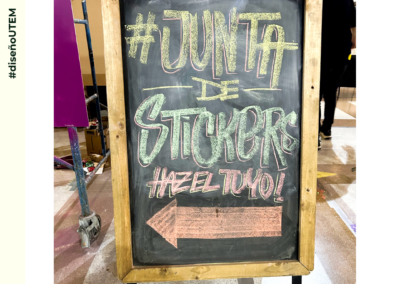 #diseñoUTEM
#JUNTA
DE
STICKERS
HAZEL TUYO!